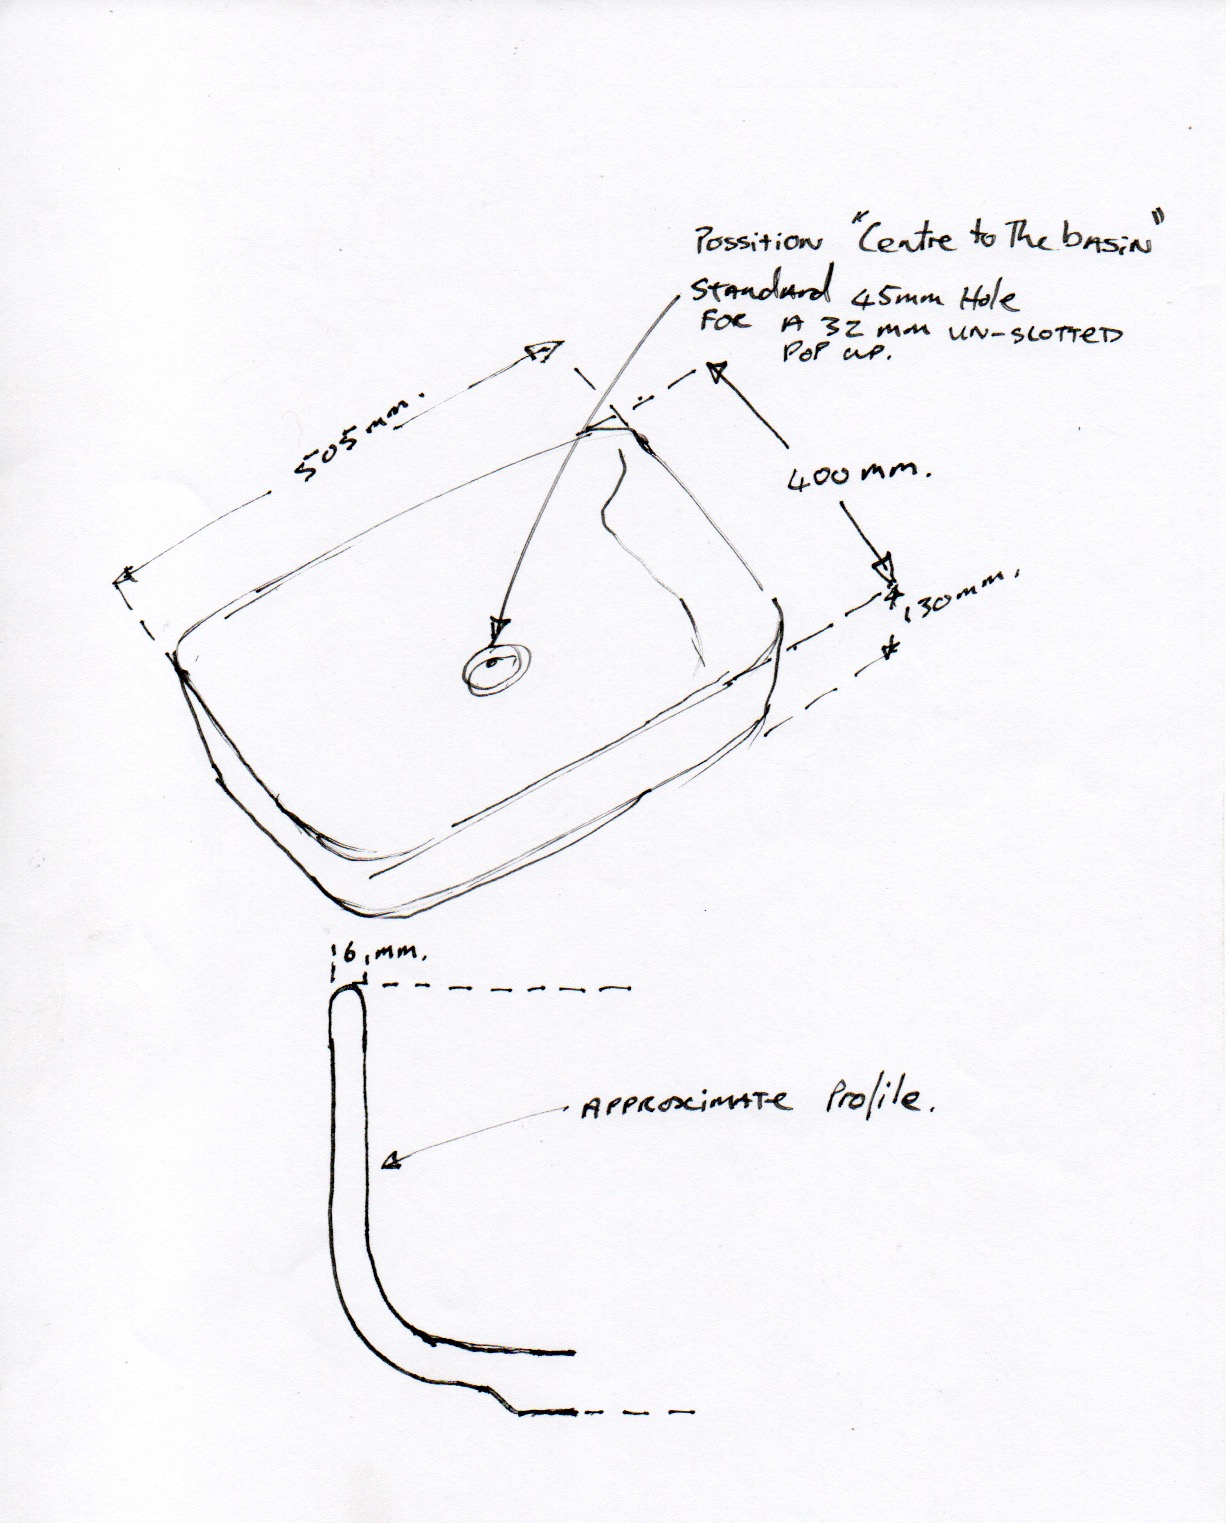 Possition "Centre to The basin"
Standard 45mm Hole
FOR A 32 mm UN-SLOTTED
POP UP.
505 mm.
400 mm.
130 mm.
6 mm.
APPROXIMATE Profile.